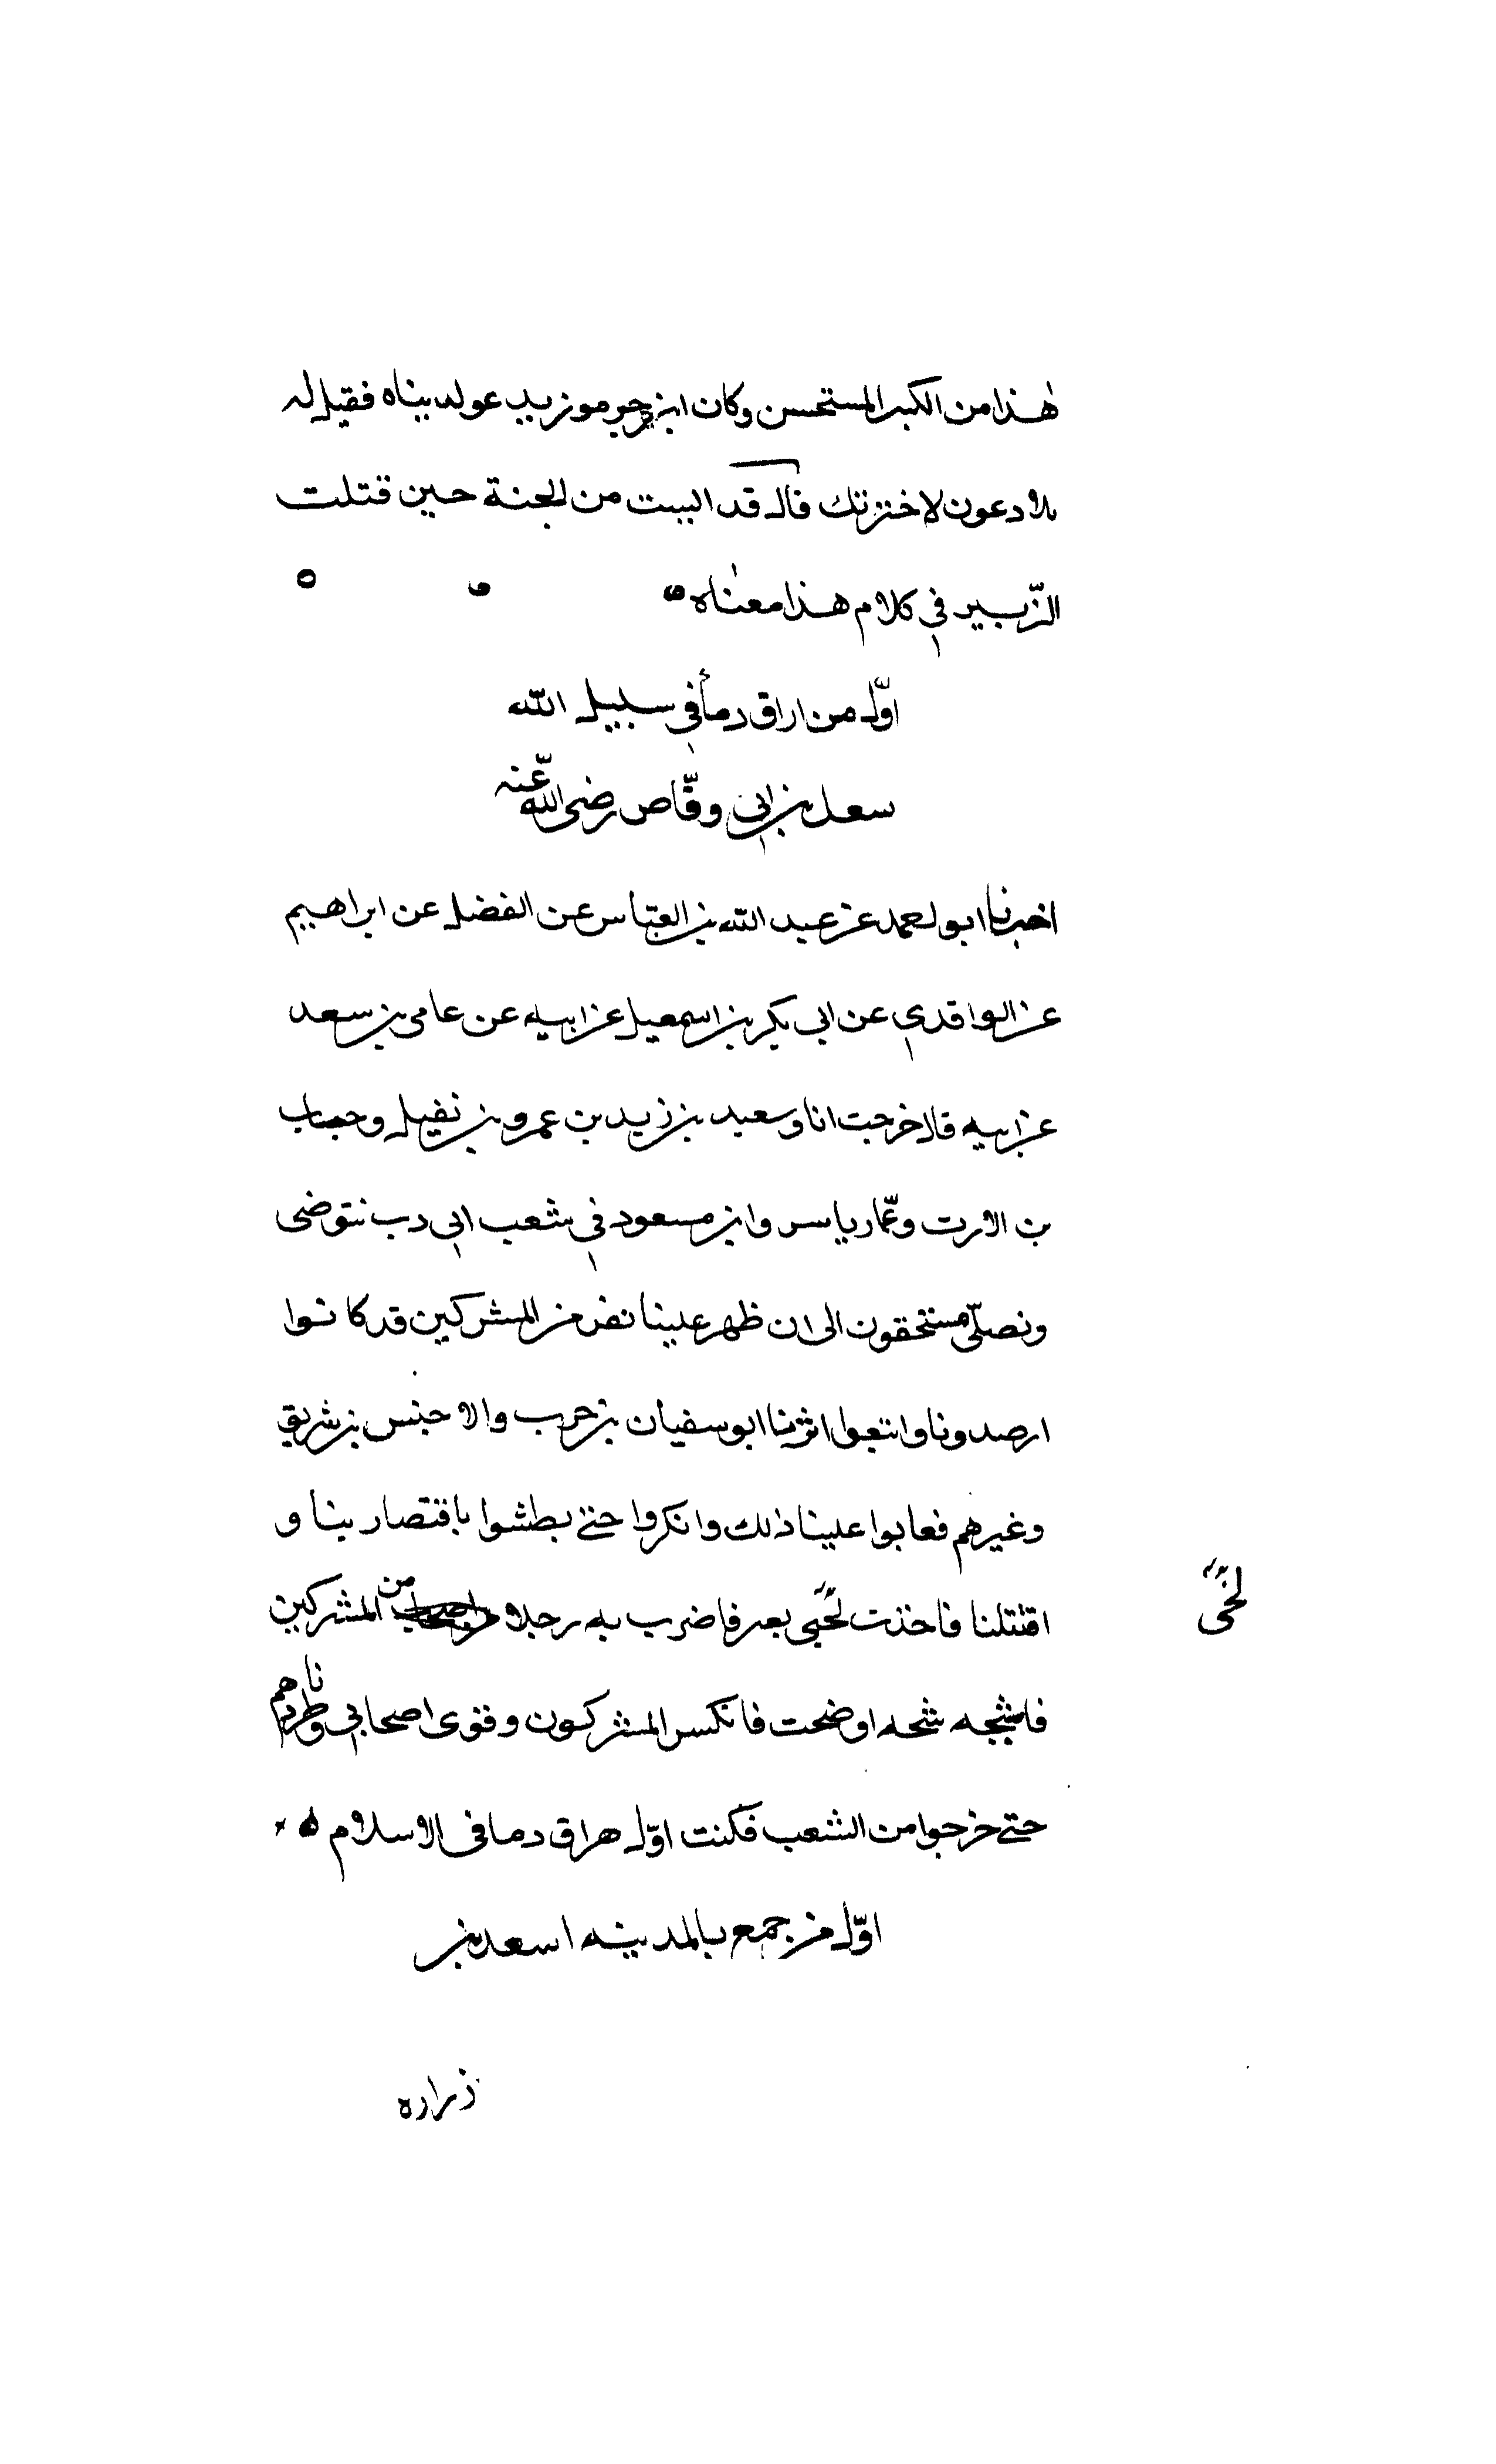 هٰذا من الكبر المستحسن وكان ابن جرموز يدعو لدنياه فقيل له
لادعون لاخرتك قال قد ايست من الجنة حين قتلت
الزّبير في كلام هذا معناه
اوّل من اراق دمأ في سبيل الله
سعد بن ابي وقّاص رضى الله عنه
اخبرنا ابو احمد عن عبد الله بن العبّاس عن الفضل عن ابراهيم
عن الواقدي عن ابى بكر بن اسمعيل عن ابيه عن عامر بن سعد
عن ابيه قال خرجت انا وسعيد بن زيد بن عمرو بن نفيل وخباب
بن الارت وعّمار ياسر وابن مسعود في شعب ابي دب نتوضى
ونصلّى مستخفون الى ان ظهر علينا نفر من المشركين قد كانوا
ارصدونا واتبعوا اثرنا ابو سفيان بن حرب والاخنس بن شريق
وغيرهم فعابوا علينا ذلك وانكروا حتى بطشوا بنا و
اقتتلنا فاخذت لحى بعير فاضرب به رجلا من المشركين
فاشجه شجه اوضحت فانكسر المشركون وقوى اصحابي وطردناهم
حتى خرجوا من الشعب فكنت اوّل هراق دما فى الاسلام
اوّل من جمع بالمدينه اسعد بن
زراره